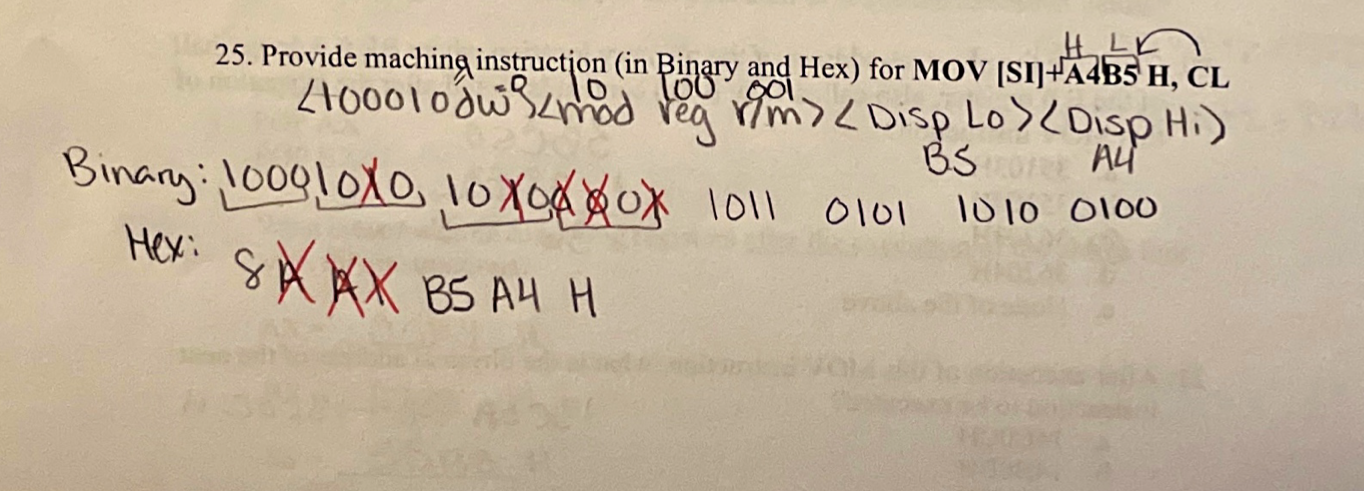 H L
25. Provide machine instruction (in Binary and Hex) for MOV [SI]+A4B5 H, CL
10 100 001
<100010dw><mod reg r/m><Disp Lo><Disp Hi>
B5 A4
Binary: 10001010 10 1011 0101 1010 0100
Hex: 8A B5 A4 H